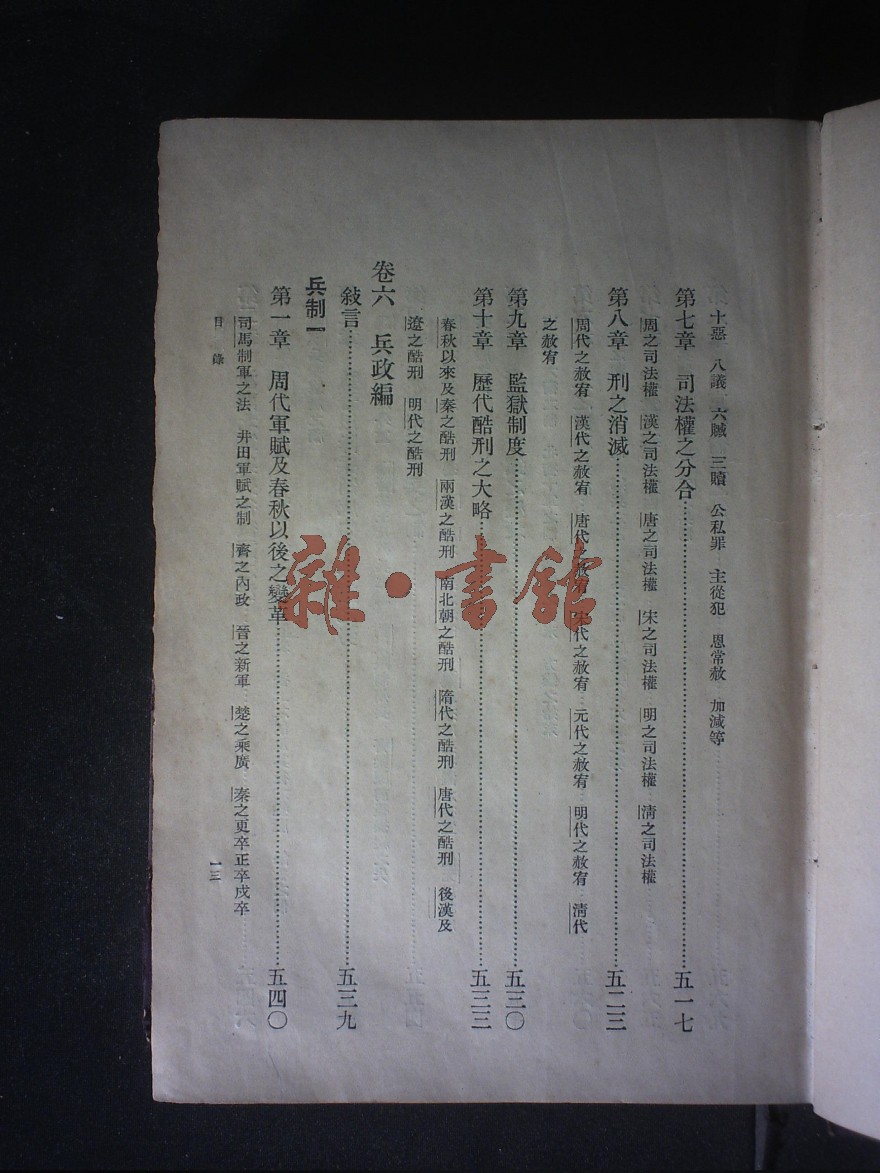 十惡　八議　六贓　三贖　公私罪　主從犯　恩常赦　加減等
第七章　司法權之分合…………五一七
周之司法權　漢之司法權　唐之司法權　宋之司法權　明之司法權　淸之司法權
第八章　刑之消滅…………五二三
周代之赦宥　漢代之赦宥　唐代之赦宥　宋代之赦宥　元代之赦宥　明代之赦宥　淸代
之赦宥
第九章　監獄制度…………五三〇
第十章　歷代酷刑之大略…………五三三
春秋以來及秦之酷刑　兩漢之酷刑　南北朝之酷刑　隋代之酷刑　唐代之酷刑　後漢及
遼之酷刑　明代之酷刑
卷六　兵政編
敍言…………五三九
兵制一
第一章　周代軍賦及春秋以後之變革…………五四〇
司馬制軍之法　井田軍賦之制　齊之內政　晉之新軍　楚之乘廣　秦之更卒正卒戍卒
目錄　一三
雜·書館